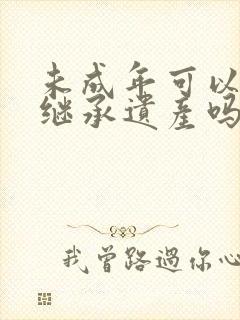 未成年可以
继承遺產吗
我曾路過你心